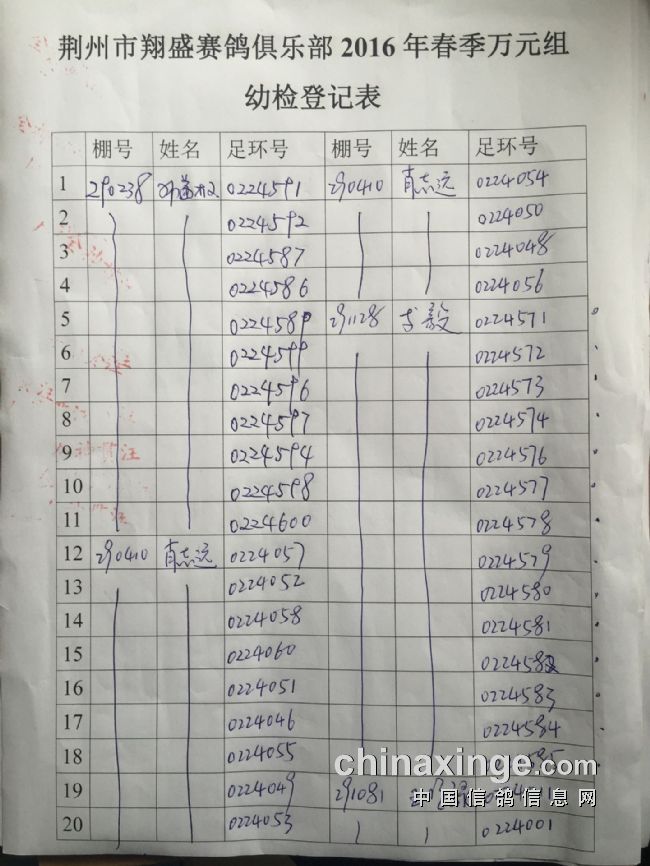 荆州市翔盛赛鸽俱乐部 2016 年春季万元组
幼检登记表
棚号 姓名 足环号 棚号 姓名 足环号
1 290238 0224591 290410 肖志远 0224054
2 0224592 0224050
3 0224587 0224048
4 0224586 0224056
5 0224589 291128 李毅 0224571
6 0224599 0224572
7 0224596 0224573
8 0224597 0224574
9 0224594 0224576
10 0224598 0224577
11 0224600 0224578
12 290410 肖志远 0224057 0224579
13 0224052 0224580
14 0224058 0224581
15 0224060 0224582
16 0224051 0224583
17 0224046 0224584
18 0224055
19 0224049 291081
20 0224053 0224001
chinaxinge.com
中国信鸽信息网